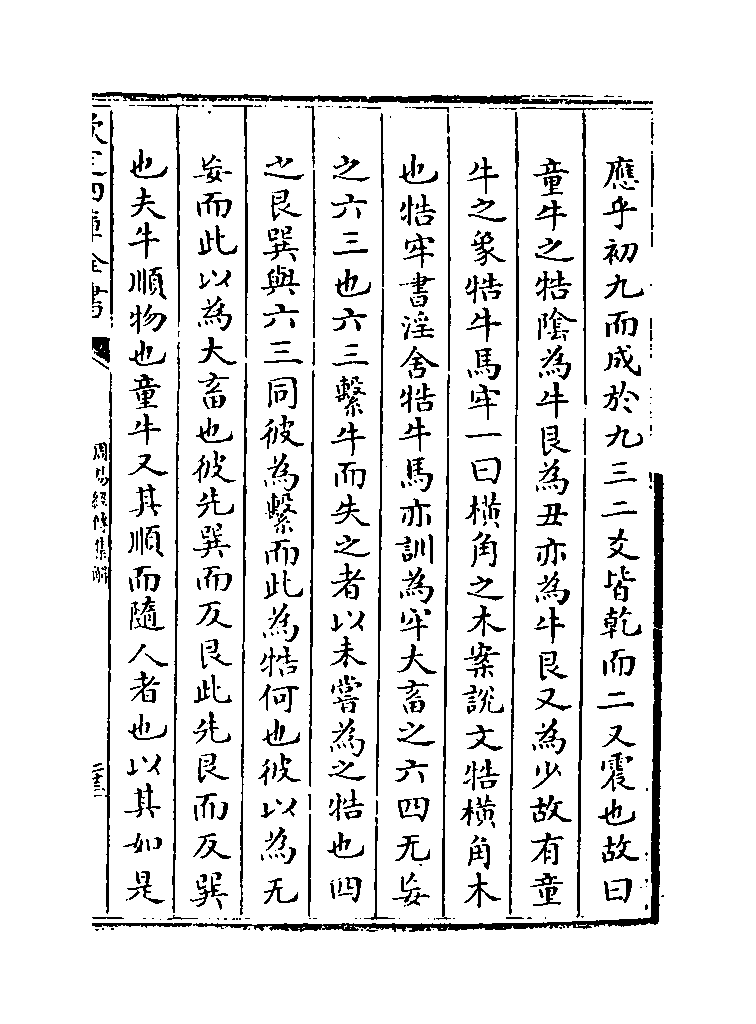 應乎初九而成於九三二爻皆乾而二又震也故曰
童牛之牿陰為牛艮為丑亦為牛艮又為少故有童
牛之象牿牛馬牢一曰橫角之木案說文牿橫角木
也牿牢書淫舍牿牛馬亦訓為牢大畜之六四无妄
之六三也六三繫牛而失之者以未嘗為之牿也四
之艮巽與六三同彼為繫而此為牿何也彼以為无
妄而此以為大畜也彼先巽而反艮此先艮而反巽
也夫牛順物也童牛又其順而隨人者也以其如是
欽定四庫全書
周易經傳集解